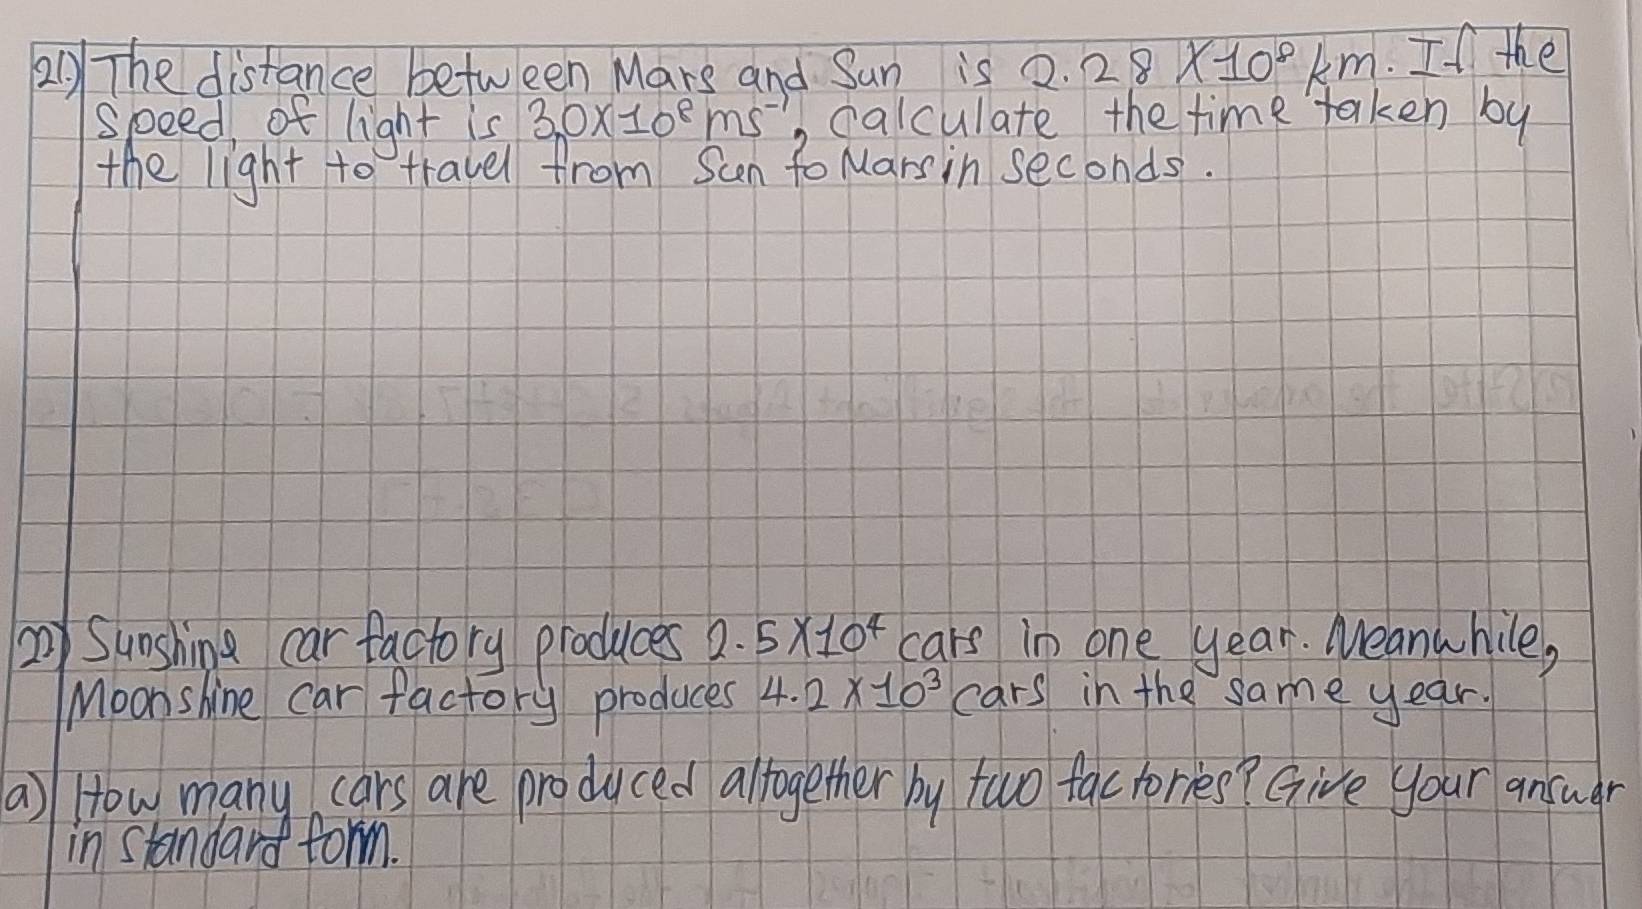 21.) The distance between Mars and Sun is 2.28 × 10⁸ km. If the
speed of light is 3.0×10⁸ ms⁻¹, calculate the time taken by
the light to travel from Sun to Mars in seconds.
22) Sunshine car factory produces 2.5×10⁴ cars in one year. Meanwhile,
Moonshine car factory produces 4.2×10³ cars in the same year.
a) How many cars are produced altogether by two factories? Give your answer
in standard form.